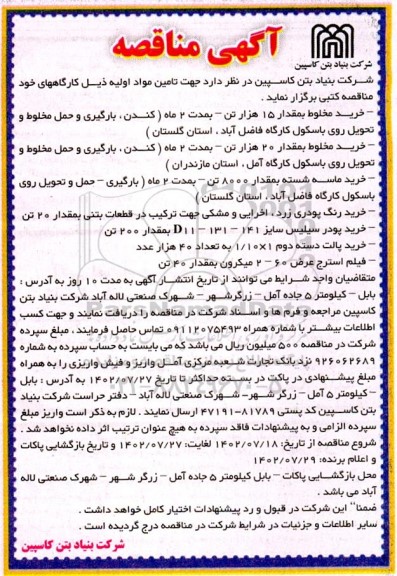 شرکت بنیاد بتن کاسپین
آگهی مناقصه
شـرکت بنیاد بتن کاسـپین در نظر دارد جهت تامین مواد اولیه ذیـل کارگاههای خود
مناقصه کتبی برگزار نماید .
– خریـد مخلوط بمقدار ۱۵ هزار تن – بمدت ۲ ماه ( کنـدن ، بارگیری و حمل مخلوط و
تحویل روی باسکول کارگاه فاضل آباد ، استان گلستان )
– خریـد مخلوط بمقدار ۲۰ هزار تن – بمدت ۲ ماه ( کنـدن ، بارگیری و حمل مخلوط و
تحویل روی باسکول کارگاه آمل ، استان مازندران )
– خرید ماسـه شسته بمقدار ۸۰۰۰ تن – بمدت ۲ ماه ( بارگیری – حمل و تحویل روی
باسکول کارگاه فاضل آباد ، استان گلستان )
– خرید رنگ پودری زرد ، اخرایی و مشکی جهت ترکیب در قطعات بتنی بمقدار ۲۰ تن
– خرید پودر سیلیس سایز ۱۴۱ – ۱۳۱ – D11 بمقدار ۲۰۰ تن
– خرید پالت دسته دوم ۱×۱/۱۰ به تعداد ۴۰ هزار عدد
– فیلم استرچ عرض ۶۰ – ۲ میکرون بمقدار ۴۰ تن
متقاضیان واجد شـرایط می توانند از تاریخ انتشـار آگهی به مدت ۱۰ روز به آدرس :
بابل – کیلومتر ۵ جاده آمل – زرگرشـهر – شـهرک صنعتی لاله آباد شـرکت بنیاد بتن
کاسپین مراجعه و فرم ها و اسـناد شـرکت در مناقصه را دریافت نمایند و جهت کسب
اطلاعات بیشتـر با شماره همراه ۰۹۱۱۲۰۷۵۴۹۳ تماس حاصل فرمایند . مبلغ سپرده
شرکت در مناقصه ۵۰۰ میلیون ریال می باشد که می بایست به حساب سپرده به شماره
۹۲۶۰۶۲۶۸۹ نزد بانک تجارت شـعبه مرکزی آمـل واریز و فیش واریزی را به همراه
مبلغ پیشـنهادی در پاکت در بسـته حداکثر تا تاریخ ۱۴۰۲/۰۷/۲۷ به آدرس : بابل
– کیلومتر ۵ آمل – زرگر شـهر– شـهرک صنعتی لاله آباد - دفتر حراست شرکت بنیاد
بتن کاسـپین کد پستی ۸۱۷۸۹–۴۷۱۹۱ ارسال نمایند . لازم به ذکر است واریز مبلغ
سپرده الزامی و به پیشنهادات فاقد سپرده به هیچ عنوان ترتیب اثر داده نخواهد شد .
شروع مناقصه از تاریخ: ۱۴۰۲/۰۷/۱۸ لغایت: ۱۴۰۲/۰۷/۲۷ و تاریخ بازگشایی پاکات
و اعلام برنده: ۱۴۰۲/۰۷/۲۹
محل بازگشـایی پاکات – بابل کیلومتر ۵ جاده آمل – زرگر شـهر – شهرک صنعتی لاله
آباد می باشد .
ضمنا" این شرکت در قبول و رد پیشنهادات اختیار کامل خواهد داشت .
سایر اطلاعات و جزئیات در شرایط شرکت در مناقصه درج گردیده است .
شرکت بنیاد بتن کاسپین